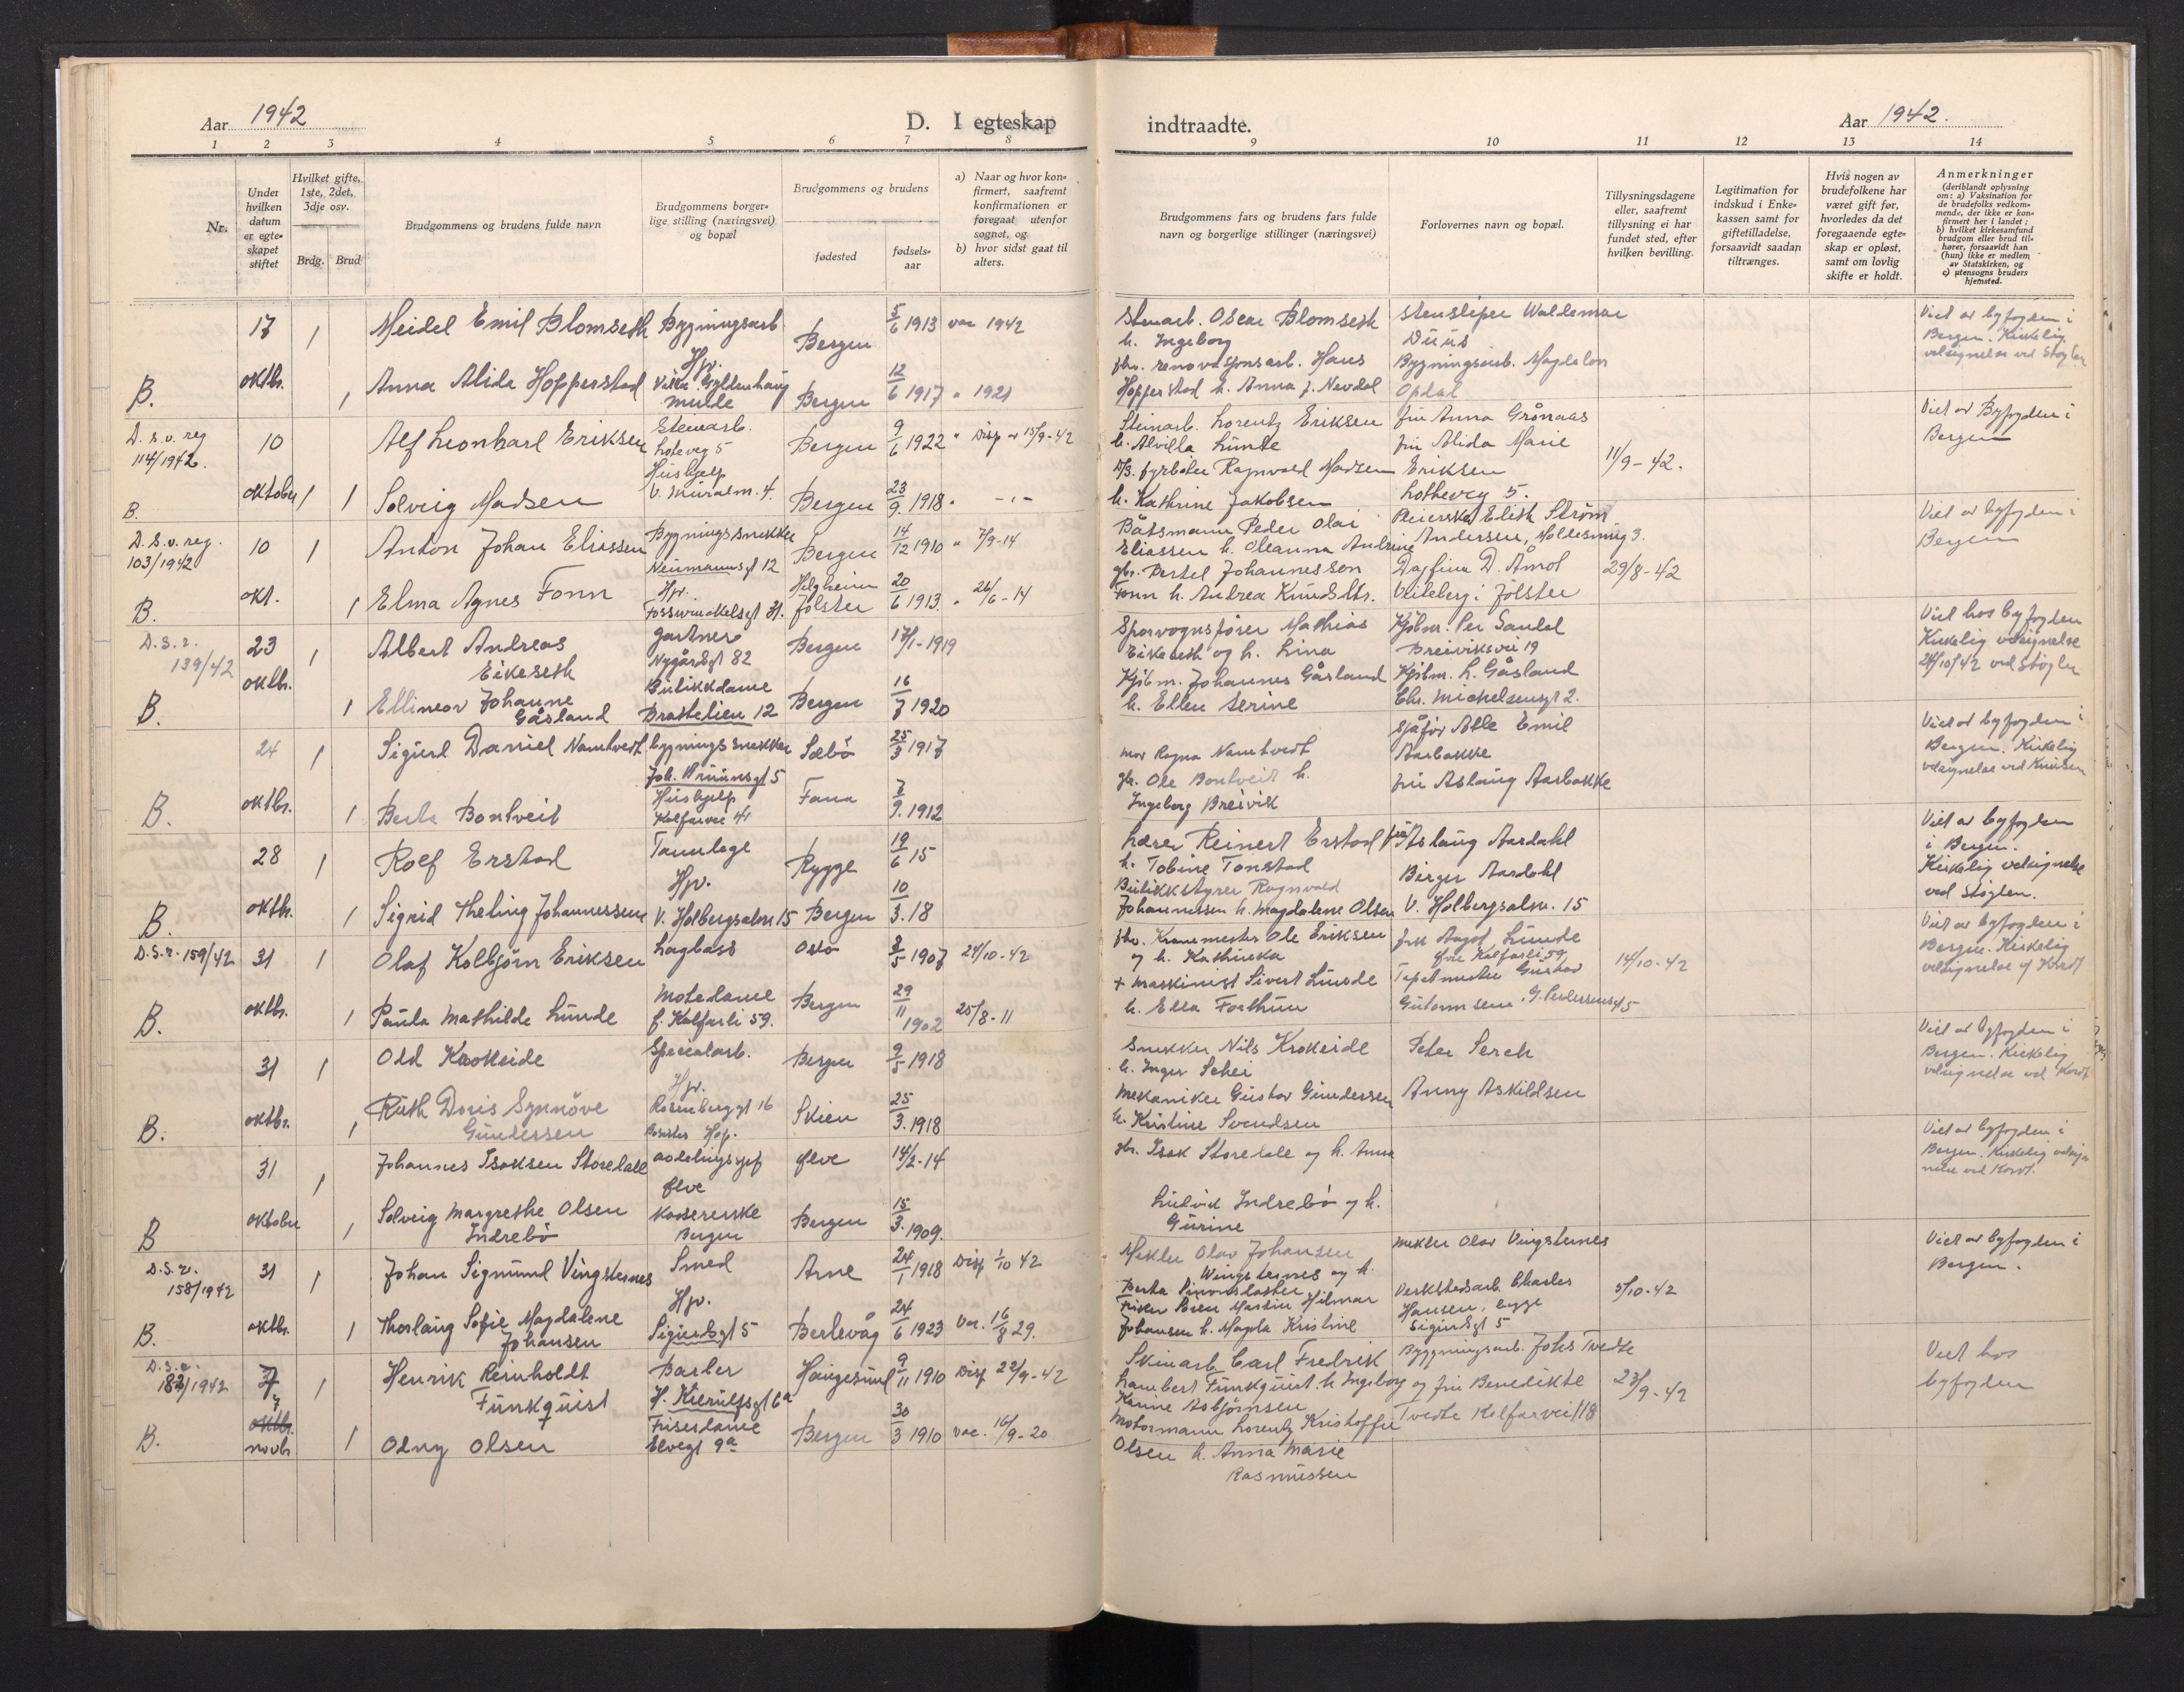 Aar 1942
D. I egteskap
1 2 3 4 5 6 7 8
Nr.
Under hvilken datum er egteskapet stiftet
Hvilket gifte, 1ste, 2det, 3dje osv.
Brdg. Brud
Brudgommens og brudens fulde navn
Brudgommens borgerlige stilling (næringsvei) og bopæl
Brudgommens og brudens
fødested
fødselsaar
a) Naar og hvor konfirmert, saafremt konfirmationen er foregaat utenfor sognet, og
b) hvor sidst gaat til alters.
indtraadte.
Aar 1942.
9 10 11 12 13 14
Brudgommens fars og brudens fars fulde navn og borgerlige stillinger (næringsvei)
Forlovernes navn og bopæl.
Tillysningsdagene eller, saafremt tillysning ei har fundet sted, efter hvilken bevilling.
Legitimation for indskud i Enkekassen samt for giftetilladelse, forsaavidt saadan tiltrænges.
Hvis nogen av brudefolkene har været gift før, hvorledes da det foregaaende egteskap er opløst, samt om lovlig skifte er holdt.
Anmerkninger
(deriblandt oplysning om: a) Vaksination for de brudefolks vedkommende, der ikke er konfirmert her i landet; b) hvilket kirkesamfund brudgom eller brud tilhører, forsaavidt han (hun) ikke er medlem av Statskirken, og c) utensogns bruders hjemsted.
17 1 Meidel Emil Blomseth Bygningsarb Bergen 5/6 1913 vac 1942
oktbr. 1 Anna Alida Hopperstad Hjv. Villa Gyldenhaug Bergen 12/6 1917 " 1921
B.
Stenarb. Oscar Blomseth
h. Ingeborg
fhv. renovasjonsarb. Hans
Hopperstad h. Anna f. Nevdal
Stensliper Waldemar
Duus
Bygningsarb. Magdalon
Opdal
Viet av byfogden i
Bergen. Kirkelig
velsignelse ved Støylen
D.s.v. reg
114/1942.
10 Alf Leonhard Eriksen Stenarb. Bergen 9/6 1922 " Disp. 15/9-42
oktober 1 1 Solveig Madsen Hushjelp Bergen 23/9. 1918
B.
Steinarb. Lorentz Eriksen
h. Alvilda Lunde
D/S. fyrbøter Ragnvald Madsen
h. Kathrine Jakobsen
fru Anna Grønaas
fru Alida Marie
Eriksen
Lotheveg 5.
11/9-42.
Viet av Byfogden i
Bergen
D.S.v. reg.
103/1942
10 1 Anton Johan Eliassen Bygningssnekker Bergen 14/12 1910 " 7/9-14
Neumannsgt 12
okt. 1 Elma Agnes Fonn Hjv. Helgheim Jølster 20/6 1913. " 26/6-14
B.
Båtsmann Peder Olai
Eliassen h. Oleanna Andrine
gbr. Bertel Johannessen
Fonn h. Andrea Knudsdtr.
Pleierske Edith Strøm
Andersen, Møllesmug 3.
Dagfinn D. Åmot
i Jølster
29/8-42
Viet av byfogden i
Bergen
D.S.r.
139/42
23 1 Albert Andreas Eikeseth gartner Nygårdsgt 82 Bergen 17/1-1919
oktbr. 1 Ellinor Johanne Gåsland Butikkdame Brattelien 12 Bergen 16/7 1920
B.
Sporvognsfører Mathias
Eikeseth og h. Lina
Kjøbm. Johannes Gåsland
h. Ellen Serine
Kjøbm. Per Sandal
Breiviksvei 19
Kjøbm. L. Gåsland
Chr. Michelsensgt 2.
Viet hos byfogden
Kirkelig velsignelse
24/10/42 ved Støylen
24 1 Sigurd Daniel Namtvedt bygningssnekker Sæbø 25/3 1917
Joh. Bruunsgt 5
oktbr. 1 Berta Bontveit Hushjelp Kalfarvei 41 Fana 7/9. 1912
B.
mor Ragna Namtvedt
gbr. Ole Bontveit h.
Ingeborg Breivik
Sjåfør Atle Emil
Aarbakke
fru Aslaug Aarbakke
Viet av byfogden i
Bergen. Kirkelig
velsignelse ved Knudsen
28 1 Rolf Erstad Tannlege Rygge 19/6 15
oktbr. 1 Sigrid Theting Johannessen Hjv. V. Holbergsalm 15 Bergen 10/3. 18
B.
Lærer Reinert Erstad
h. Tobine Tonstad
Butikkstyrer Ragnvald
Johannessen h. Magdalene Olsen
fru Aslaug Aardahl
Birger Aardahl
V. Holbergsalm. 15
Viet av byfogden
i Bergen.
Kirkelig velsignelse
ved Støylen.
D.S.r. 159/42 31 1 Olaf Kolbjørn Eriksen Lagbass Oslo 3/5 1907 24/10-42
oktbr. 1 Paula Mathilde Lunde Motedame f. Kalfarli 59. Bergen 29/11 1902 25/8-11
B.
fhv. Kranmester Ole Eriksen
og h. Kathinka
+ Maskinist Sivert Lunde
h. Ella Forthun
frk Aagot Lunde
Øvre Kalfarli 59
Tapetmester Gustav
Gutormsen
14/10-42
Viet av byfogden i
Bergen. Kirkelig
velsignelse v/ Kordt
31 1 Odd Krokeide Specialarb. Bergen 9/5 1918
oktbr. 1 Ruth Doris Synnöve Gundersen Hjv. Rosenberggt 16 Skien 25/3. 1918
B.
Snekker Nils Krokeide
h. Inger Schei
Mekaniker Gustav Gundersen
h. Kristine Svendsen
Peter Serch
Anny Askildsen
Viet av byfogden i
Bergen. Kirkelig
velsignelse ved Kordt
31 1 Johannes Isaksen Storedale avdelingssjef Ølve 14/2-14
Ølve
oktober 1 Solveig Margrethe Olsen Indrebø Kassererske Bergen Bergen 15/3. 1909.
B
gbr. Isak Storedale og h. Anna
Ludvik Indrebø og h.
Gurine
Viet av byfogden i
Bergen. Kirkelig velsignelse
ved Kordt.
D.S.v.
158/1942
31 1 Johan Sigmund Vingsternes Smed Arne 24/1 1918 Disp 1/10 42
oktbr. 1 Thorlaug Sofie Magdalene Johansen Hjv. Sigurdsgt 5 Berlevåg 24/6 1923 Vac. 16/8 29.
B.
Mekler Olav Johansen
Wingsternes og h.
Berta Simonsdatter
Fisker Søren Martin Hilmar
Johansen h. Magda Kristine
Mekler Olav Vingsternes
Verkstedsarb. Charles
Hansen, begge
Sigurdsgt 5
5/10-42
Viet av byfogden i
Bergen.
D.S.v.
182/1942
7 1 Henrik Reinholdt Funkquist Barber Haugesund 9/11 1910 Disp 22/9-42
H. Kierulfsgt 6a
oktbr.
novbr 1 Odny Olsen Frisørdame Elvegt 9a Bergen 30/3 1910 vac. 16/9-20
B.
Skinarb Carl Fredrik
Lambert Funkquist. h Ingeborg
Karine Asbjørnsen
Motormann Lorentz Kristoffer
Olsen h. Anna Marie
Rasmussen
Byggningsarb. Johs Tvedte
og fru Benedikte
Tvedte Kalfarvei 118
23/9-42
Viet hos
byfogden